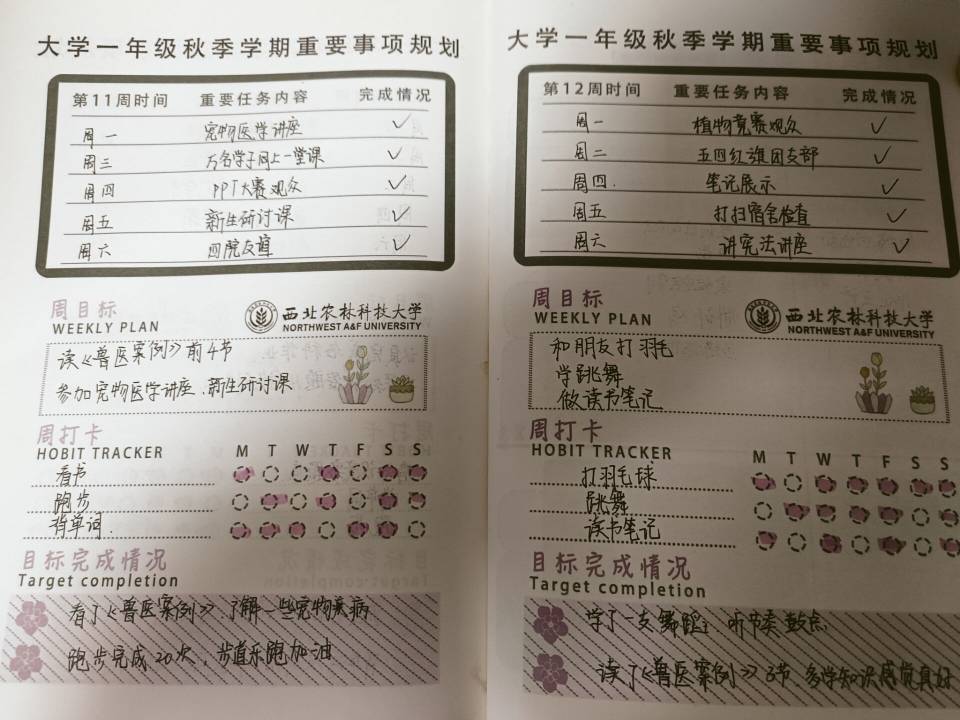 大学一年级秋季学期重要事项规划
第11周时间 重要任务内容 完成情况
周一 宠物医学讲座 ✓
周三 万名学子同上一堂课 ✓
周四 PPT大赛观众 ✓
周五 新生研讨课 ✓
周六 四院友谊 ✓
周目标
WEEKLY PLAN
西北农林科技大学
NORTHWEST A&F UNIVERSITY
读《兽医案例》前4节
参加宠物医学讲座、新生研讨课
周打卡
HOBIT TRACKER M T W T F S S
看书
跑步
背单词
目标完成情况
Target completion
看了《兽医案例》,了解一些宠物疾病
跑步完成20次,步道乐跑加油
大学一年级秋季学期重要事项规划
第12周时间 重要任务内容 完成情况
周一 植物竞赛观众 ✓
周二 五四红旗团支部 ✓
周四. 笔记展示 ✓
周五 打扫宿舍检查 ✓
周六 讲宪法讲座 ✓
周目标
WEEKLY PLAN
西北农林科技大学
NORTHWEST A&F UNIVERSITY
和朋友打羽毛
学跳舞
做读书笔记
周打卡
HOBIT TRACKER M T W T F S S
打羽毛球
跳舞
读书笔记
目标完成情况
Target completion
学了一支舞蹈,听节奏鼓点
读了《兽医案例》3节,多学知识感觉真好